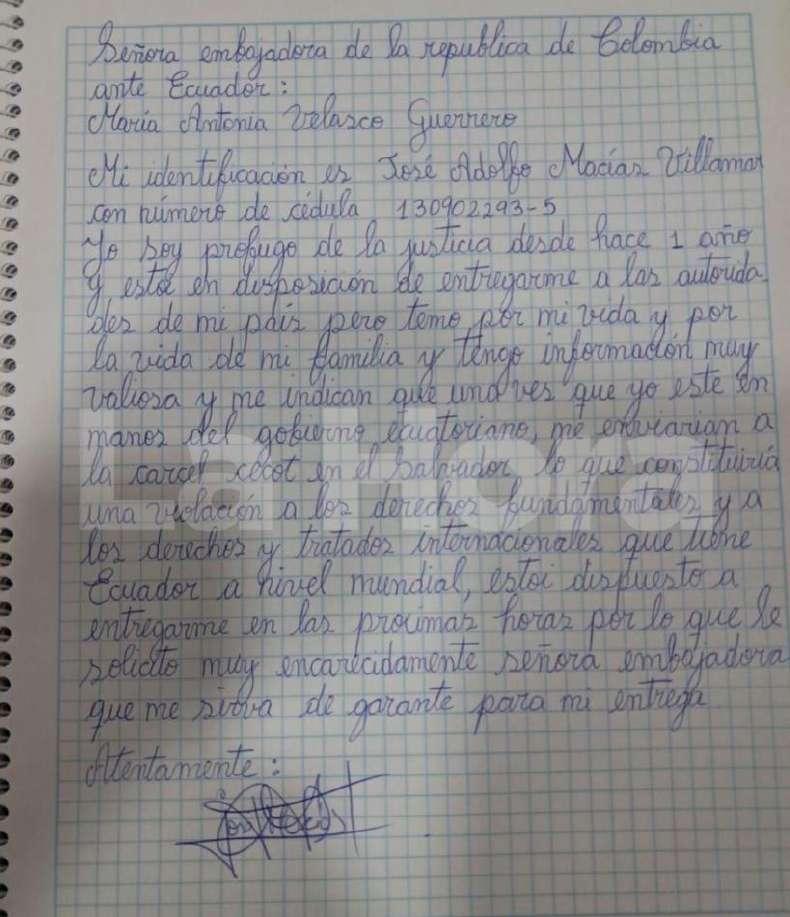 Señora embajadora de la republica de Colombia
ante Ecuador:
María Antonia Velasco Guerrero
Mi identificación es José Adolfo Macías Villamar
con número de cédula 130902293-5
Yo soy profugo de la justicia desde hace 1 año
y estoi en disposición de entregarme a las autorida
des de mi país pero temo por mi vida y por
la vida de mi familia y tengo información muy
valiosa y me indican que una ves que yo este en
manos del gobierno ecuatoriano, me enviarian a
la carcel cecot en el Salvador lo que constituiría
una violación a los derechos fundamentales y a
los derechos y tratados internacionales que tiene
Ecuador a nivel mundial, estoi dispuesto a
entregarme en las proximas horas por lo que le
solicito muy encarecidamente señora embajadora
que me sirva de garante para mi entrega
Atentamente:
La Hora